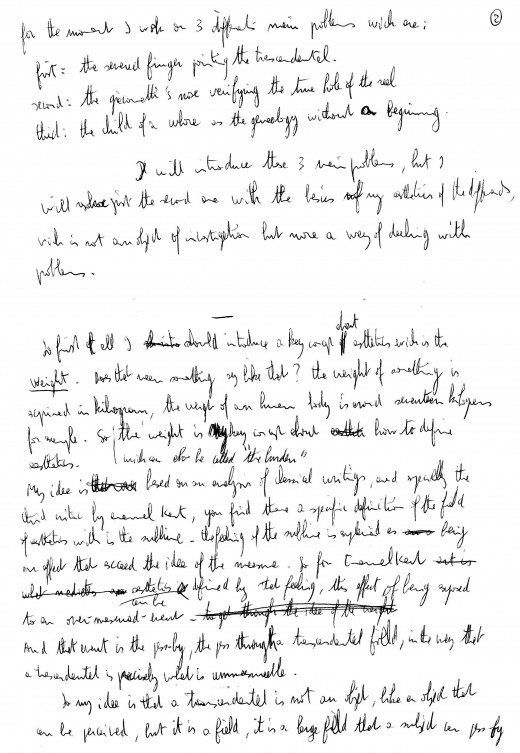 ②
for the moment I work on 3 differents main problems wich are:
first = the severed finger pointing the trascendental.
second: the giacometti's nose verifying the true hole of the reel
third: the child of a whore as the genealogy without a Beginning.
I will introduce those 3 main problems, but I
will just the second one with the basics of my esthetics of the differends,
wich is not an object of investigation but more a way of dealing with
problems.
—
So first of all I should introduce a key concept about esthetics wich is the
weight. Does that mean something say like that? the weight of something is
in kilogram, the weigh of an human body is around seventeen kilogrens
for exemple. So the weight is key concept about how to define
esthetics. wich can also be called "the burden"
My idea is based on an analysis of classical writings, and especially the
third critic by emanuel Kant, you find there a specific definition of the field
of esthetics wich is the sublime. the feeling of the sublime is explained as being
an effect that exceed the idea of the mesure. So for Emanuel Kant
esthetics can be defined by that feeling, this effect of being exposed
to an over-mesured-event
And that event is the pass-by, the pass through a transcendental field, in the way that
a trascendental is precisely what is unmesurable.
So my idea is that a transcendental is not an objet, like an objet that
can be perceived, but it is a field, it is a large field that a subject can pass-by